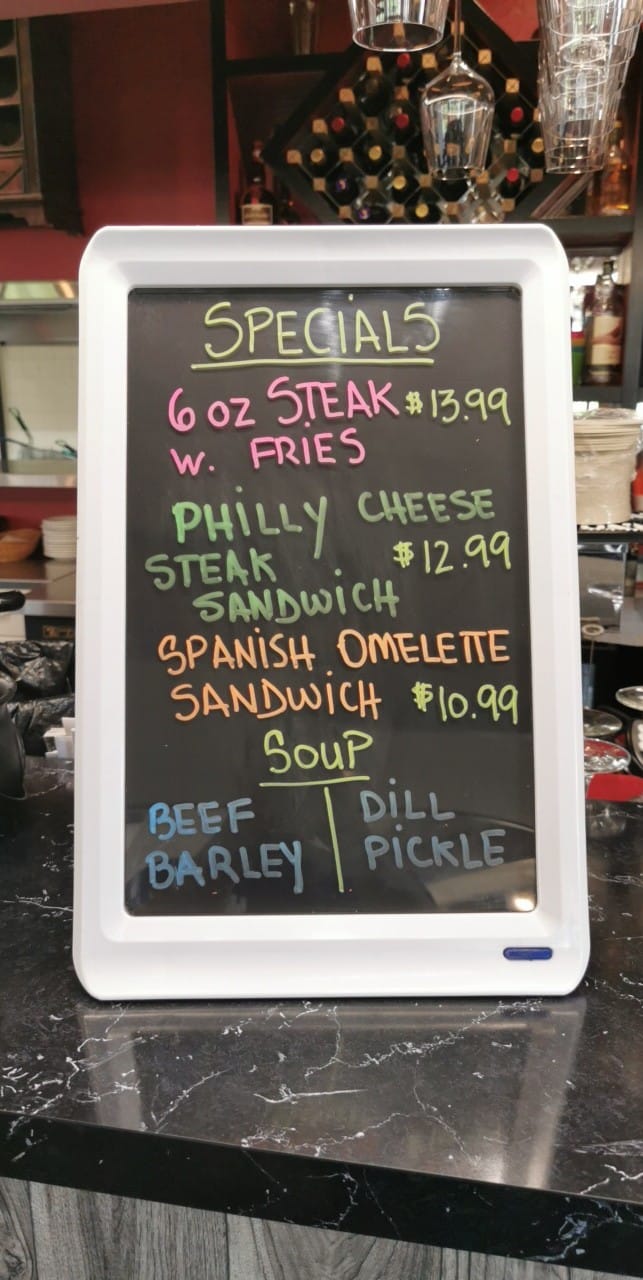 SPECIALS
6 oz STEAK $13.99
W. FRIES
PHILLY CHEESE
STEAK $12.99
SANDWICH
SPANISH OMELETTE
SANDWICH $10.99
SOUP
BEEF BARLEY
DILL PICKLE